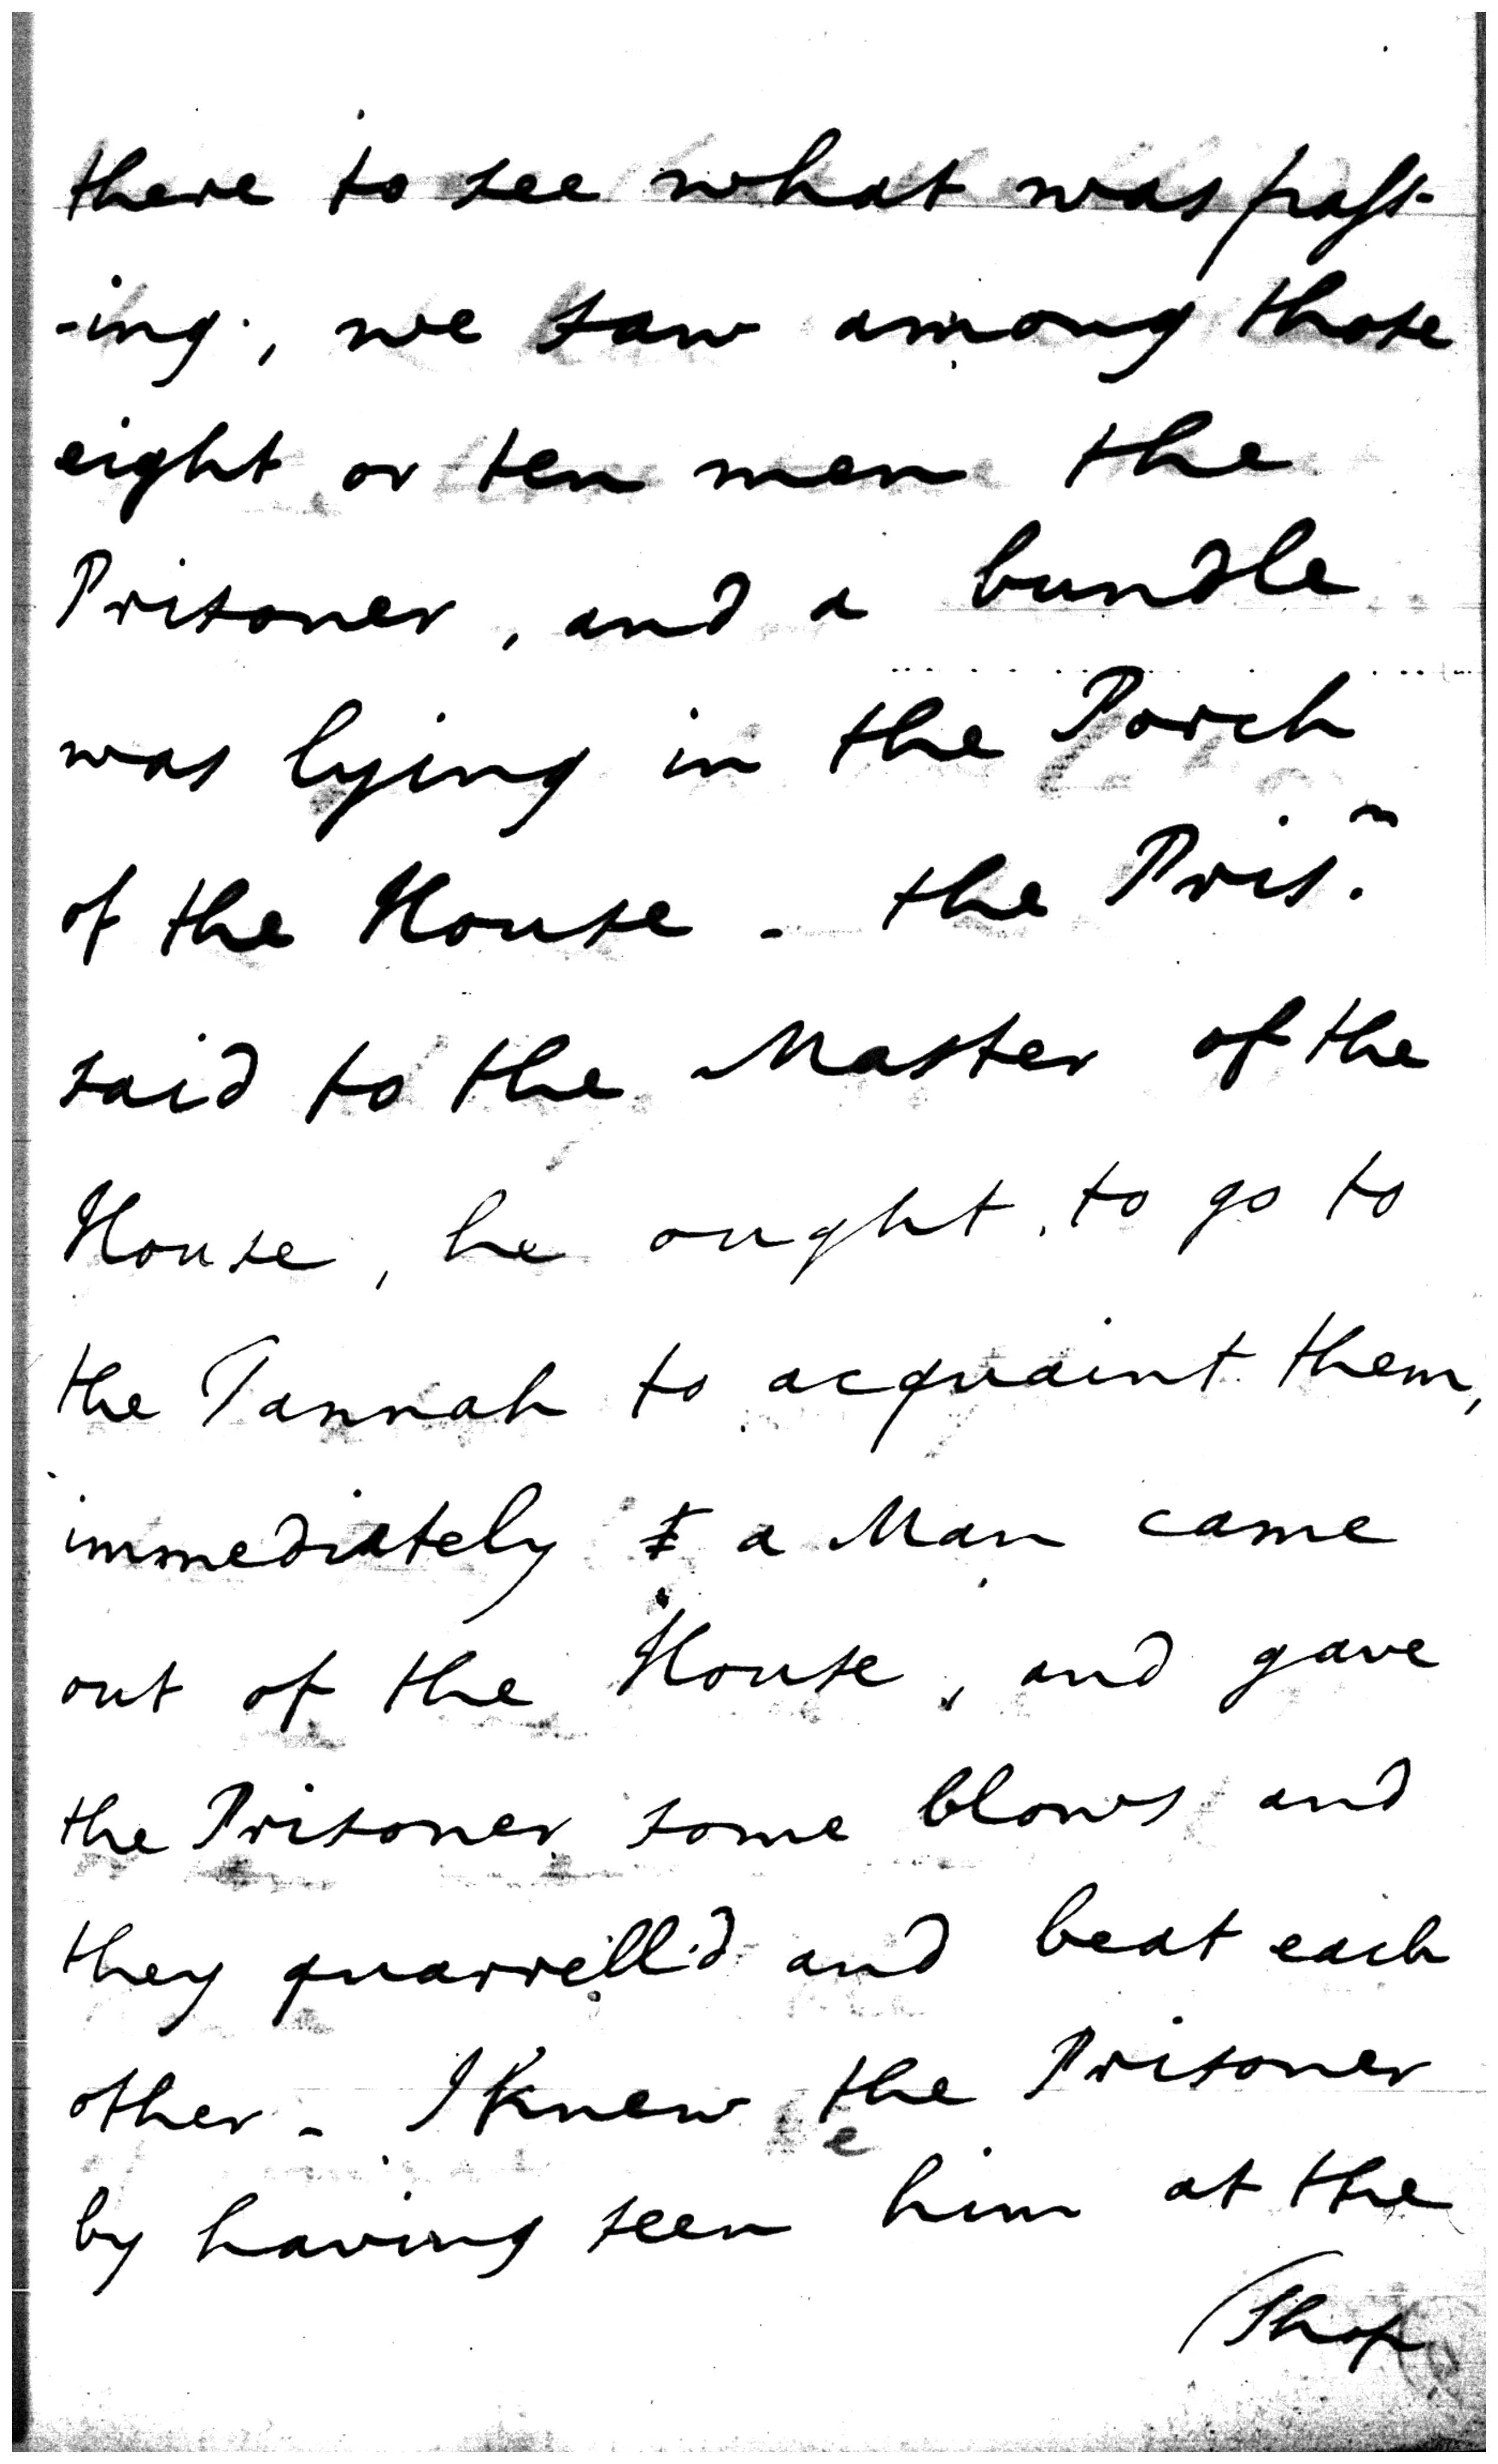 there to see what was pass-
-ing, we saw among those
eight or ten men the
Prisoner, and a bundle
was lying in the Porch
of the House - the Pris.n
said to the Master of the
House, he ought to go to
the Tannah to acquaint them,
immediately a Man came
out of the House, and gave
the Prisoner some blows and
they quarrell'd and beat each
other - I knew the Prisoner
by having seen him at the
Shop